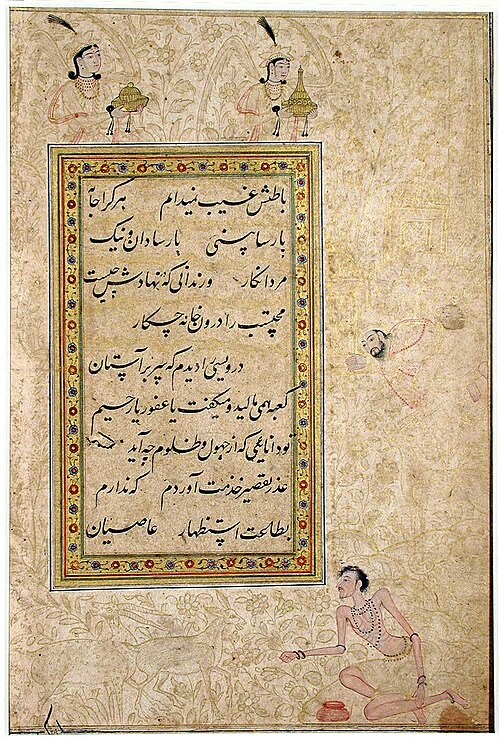 باطنش غیب نمیدانم هر کرا جامهٔ
پارسا بینی پارسا دان و نیک
مرد انگار ور ندانی که نهادش چیست
محتسب را درون خانه چه کار
درویشی را دیدم که سر بر آستان
کعبه همی مالید و میگفت یا غفور یا رحیم
تو دانایی که از جهول و ظلوم چه آید
عذر تقصیر خدمت آوردم که ندارم
بطاعت استظهار عاصیان